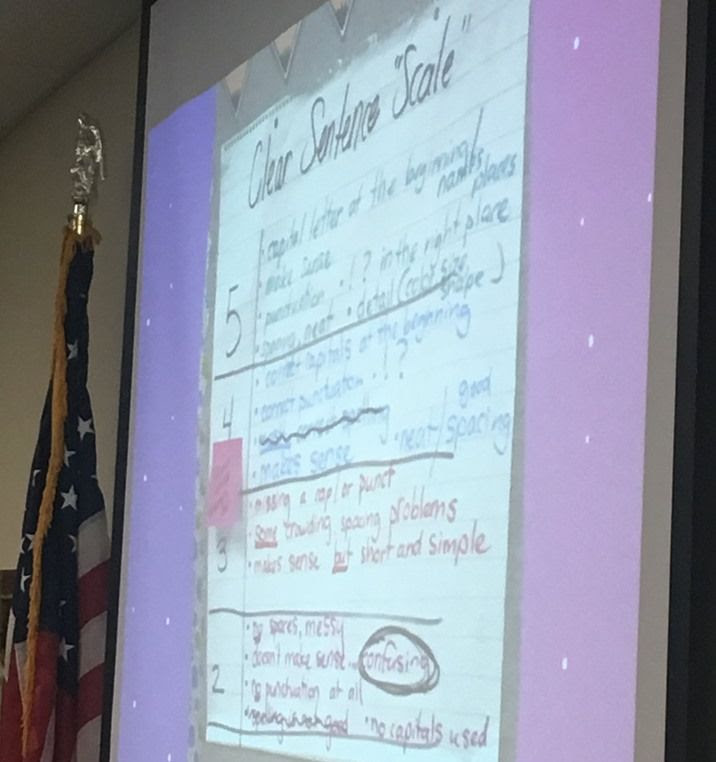 Clear Sentence "Scale"
• capital letter at the beginning/
names
places
• make sense
• punctuation . ! ? in the right place
5
• spacing, neat • detail (color size
shape)
• correct capitals at the beginning
4
• correct punctuation . ! ?
• makes sense • neat/good spacing
• missing a cap/or punct
• some crowding spacing problems
3
• makes sense but short and simple
• no spaces, messy
• doesn't make sense... confusing
2
• no punctuation at all
• no capitals used